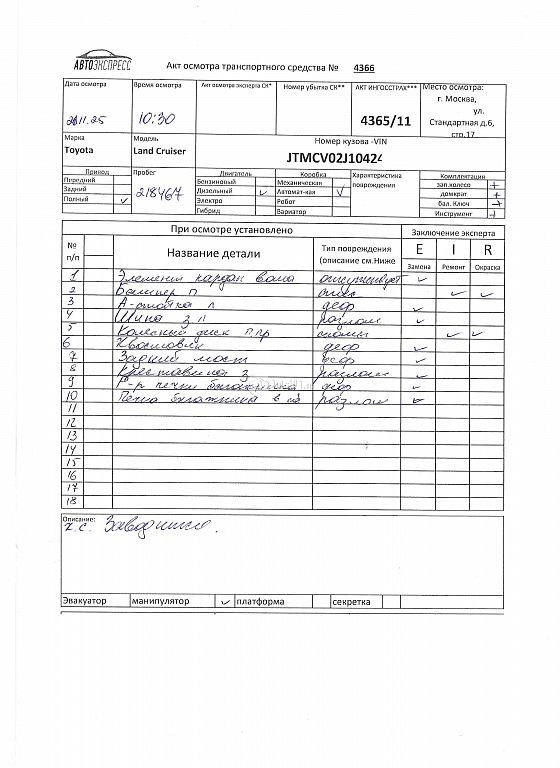 АВТОЭКСПРЕСС
Акт осмотра транспортного средства № 4366
Дата осмотра Время осмотра Акт осмотра эксперта СК* Номер убытка СК** АКТ ИНГОССТРАХ*** Место осмотра:
г. Москва,
ул.
Стандартная д.6,
стр.17
10:30 4365/11
Марка Модель Номер кузова -VIN
Toyota Land Cruiser JTMCV02J10424
Привод Пробег Двигатель Коробка Характеристика повреждения Комплектация
Передний Бензиновый Механическая зап.колесо +
Задний 218467 Дизельный ✓ Автомат-кая V домкрат +
Полный ✓ Электро Робот бал. Ключ +
Гибрид Вариатор Инструмент +
При осмотре установлено Заключение эксперта
№ п/п Название детали Тип повреждения (описание см.Ниже E I R
Замена Ремонт Окраска
1 Элемент кардан вала отсутствует ✓
2 Бампер п ✓ ✓
3 А-стойка л деф ✓
4 Шина з л разлом ✓
5 Колесный диск п пр сколы ✓ ✓
6 Хвостовик деф ✓
7 Задний мост деф ✓
8 Крестовина з разлом ✓
9 печки багажника деф ✓
10 Печка багажника в разлом ✓
11
12
13
14
15
16
17
18
Описание:
Эвакуатор манипулятор ✓ платформа секретка